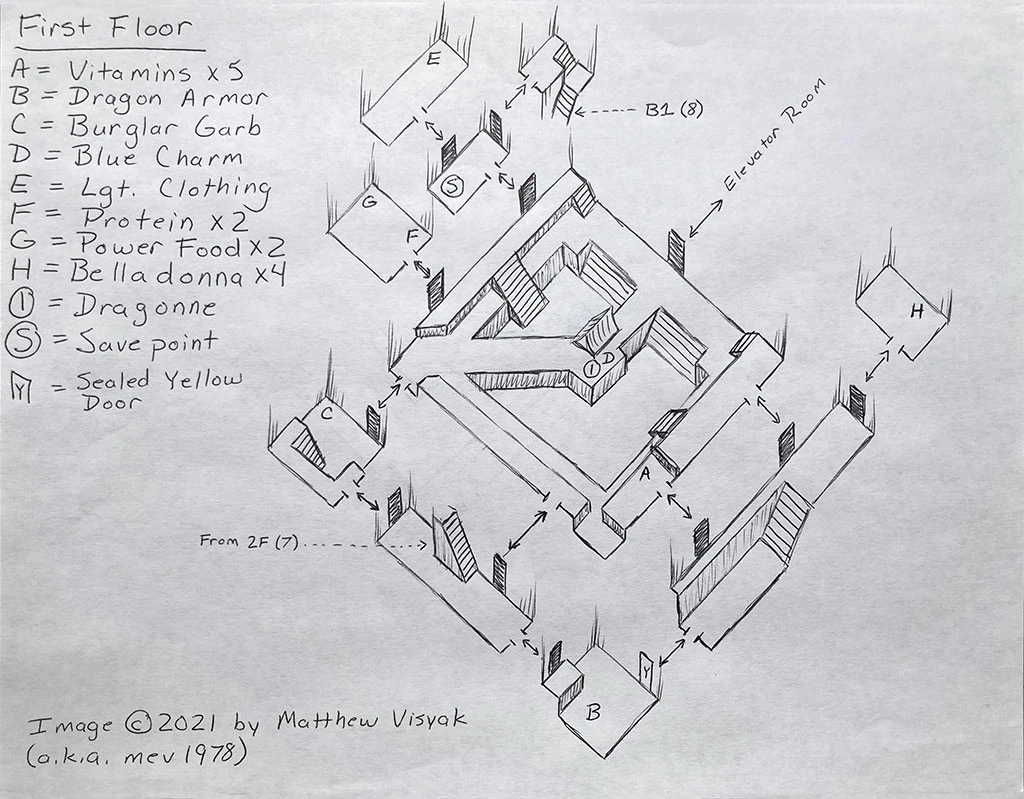 First Floor
A = Vitamins x 5
B = Dragon Armor
C = Burglar Garb
D = Blue Charm
E = Lgt. Clothing
F = Protein x 2
G = Power Food x 2
H = Belladonna x 4
① = Dragonne
Ⓢ = Save point
Y = Sealed Yellow
Door
E
B1 (8)
Elevator Room
S
G
F
H
D
1
C
A
From 2F (7)
Y
B
Image © 2021 by Matthew Visyak
(a.k.a. mev1978)